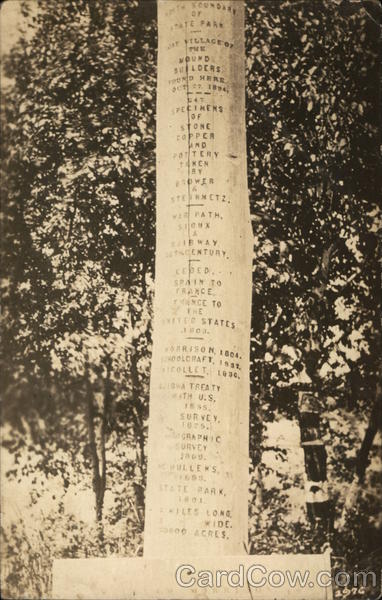 BOUNDARY
OF
STATE PARK.
VILLAGE OF
THE
MOUND
BUILDERS.
FOUND HERE
OCT. 27. 1894.
SPECIMENS
OF
STONE
COPPER
AND
POTTERY
TAKEN
BY
BROWER
&
STEINMETZ.
WAR PATH,
SIOUX
&
CENTURY.
CEDED.
SPAIN TO
FRANCE.
FRANCE TO
THE
UNITED STATES
1803.
MORRISON, 1804.
SCHOOLCRAFT, 1832.
NICOLLET, 1836.
TREATY
WITH U.S.
1855.
SURVEY,
1875.
SURVEY
STATE PARK,
1891.
MILES LONG.
WIDE.
ACRES.
CardCow.com
2976